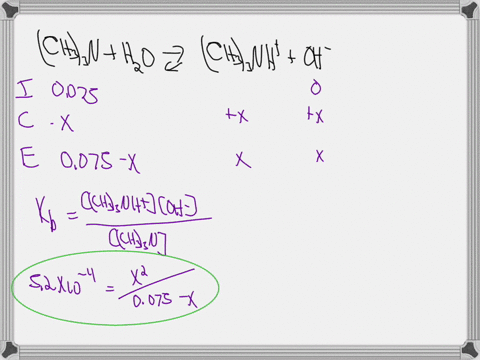 (CH₃)₃N + H₂O ⇌ (CH₃)₃NH⁺ + OH⁻
I 0.075 0
C -x +x +x
E 0.075-x x x
K_b = [(CH₃)₃NH⁺][OH⁻] / [(CH₃)₃N]
5.2x10⁻⁴ = x² / 0.075-x